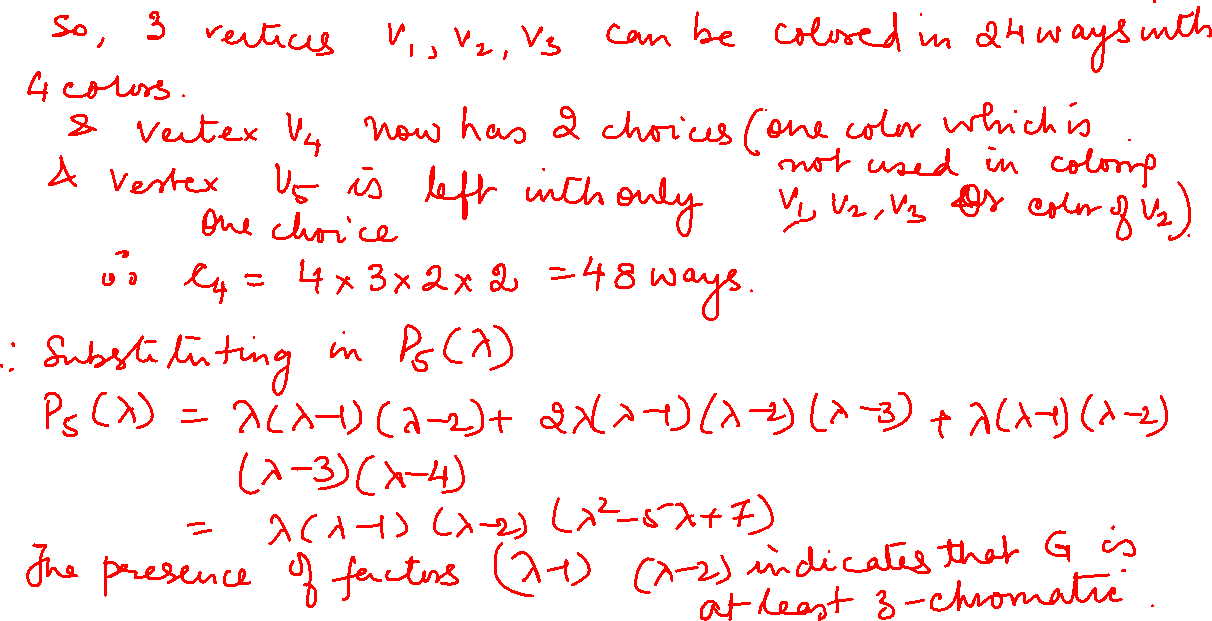 So, 3 vertices V₁, V₂, V₃ can be colored in 24 ways with
4 colors.
& Vertex V₄ now has 2 choices (one color which is
not used in coloring
V₁, V₂, V₃ or color of V₂)
& Vertex V₅ is left with only
One choice
∴ C₄ = 4 × 3 × 2 × 2 = 48 ways.
∴ Substituting in P₅(λ)
P₅(λ) = λ(λ-1)(λ-2) + 2λ(λ-1)(λ-2)(λ-3) + λ(λ-1)(λ-2)
(λ-3)(λ-4)
= λ(λ-1)(λ-2)(λ²-5λ+7)
The presence of factors (λ-1) (λ-2) indicates that G is
at least 3-chromatic.